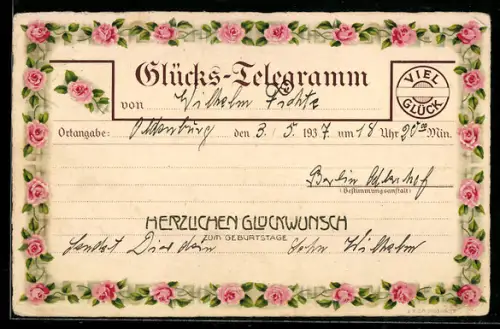 Glücks-Telegramm
VIEL GLÜCK
von Wilhelm Fichte
Ortangabe: Oldenburg den 3. 5. 1937 um 18 Uhr 20 Min.
Berlin Adlershof
(Bestimmungsanstalt)
HERZLICHEN GLÜCKWUNSCH
ZUM GEBURTSTAGE
sendet Dir dein Sohn Wilhelm